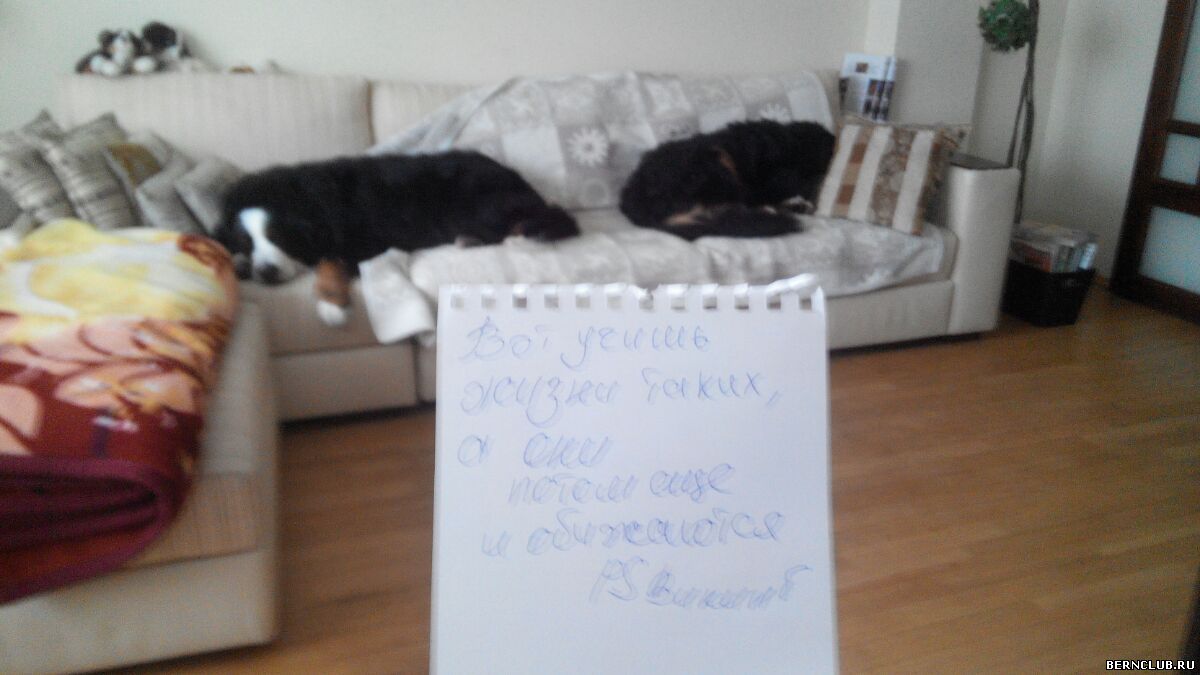 Вот учишь
жизни таких,
а они
потом еще
и обижаются
PS
BERNCLUB.RU